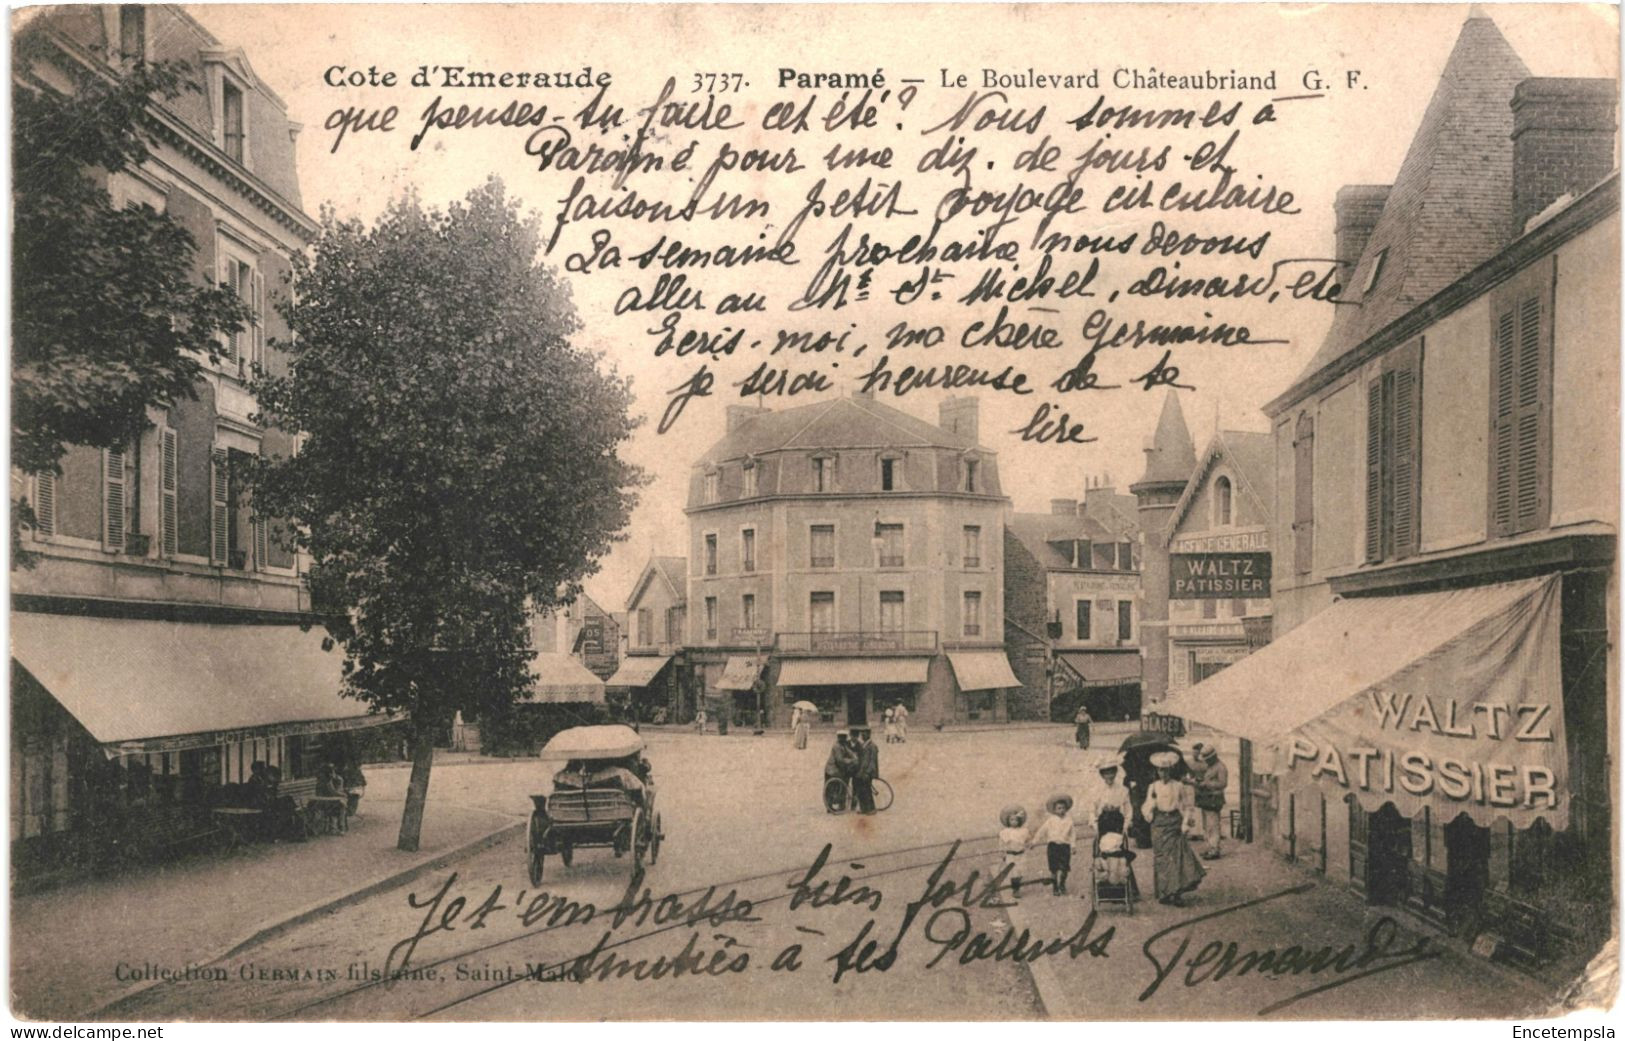 Cote d'Emeraude 3737. Paramé — Le Boulevard Châteaubriand G. F.
que penses-tu faire cet été? Nous sommes à
Paramé pour une diz. de jours et
faisons un petit voyage circulaire
La semaine prochaine nous devons
aller au Mt St. Michel, Dinard, etc
Ecris-moi, ma chère Germaine
je serai heureuse de te
lire
AGENCE GENERALE
WALTZ
PATISSIER
HOTEL
HOTEL
GLACES
WALTZ
PATISSIER
Je t'embrasse bien fort
Amitiés à tes Parents Fernande
Collection GERMAIN fils aîné, Saint-Malo
Encetempsla